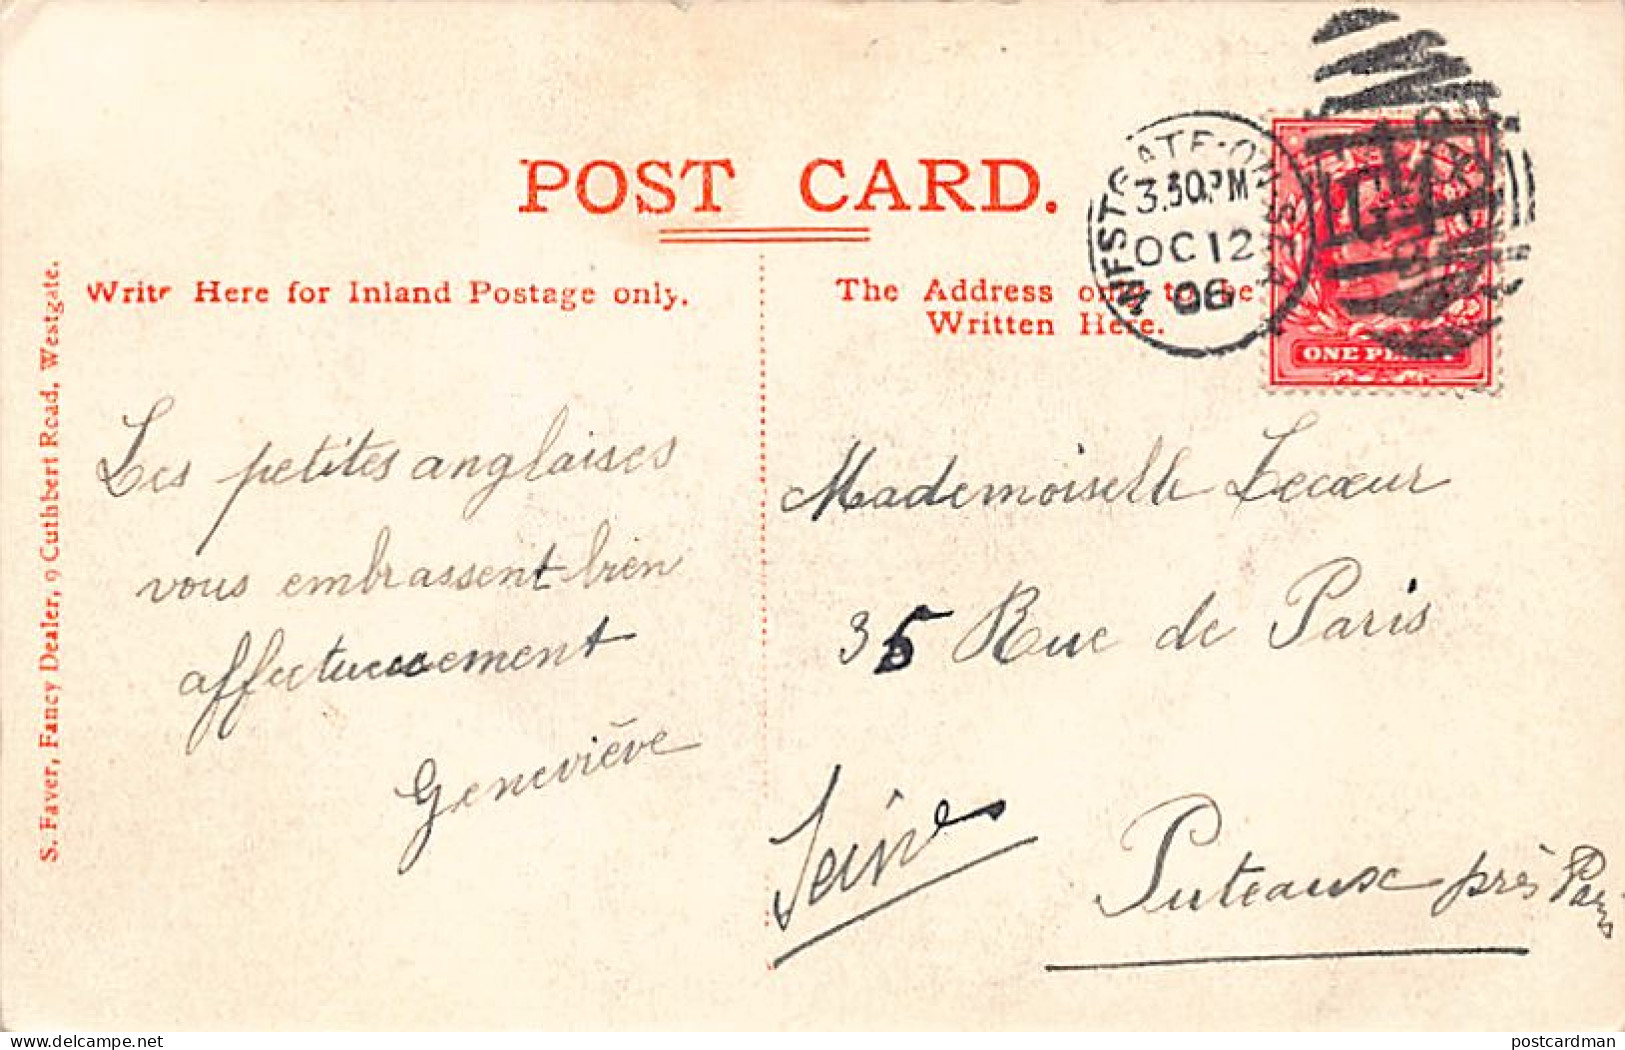 POST CARD.
Write Here for Inland Postage only.
The Address only to be
Written Here.
WESTGATE-ON-SEA
3.30PM
OC 12
06
ONE PENNY
S. Faver, Fancy Dealer, 9 Cuthbert Road, Westgate.
Les petites anglaises
vous embrassent bien
affectueusement
Geneviève
Mademoiselle Lecœur
35 Rue de Paris
Puteaux près Paris
Seine
postcardman